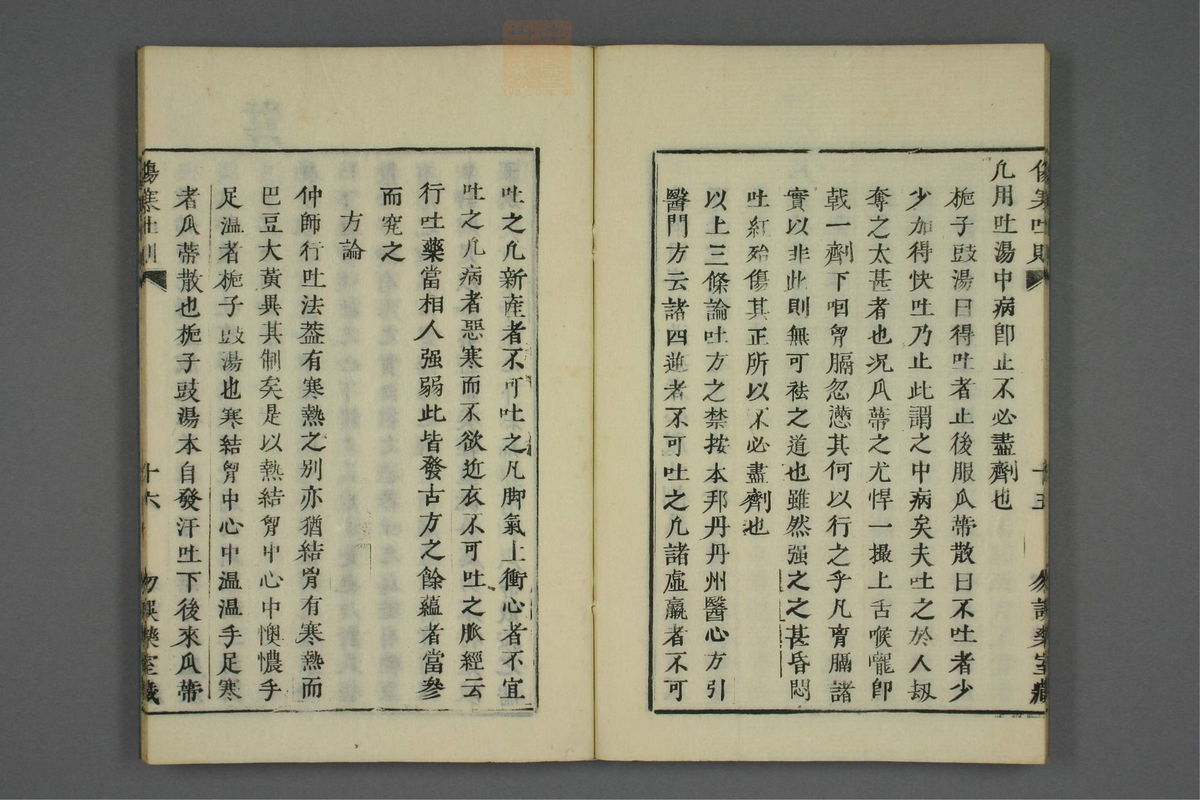 凢用吐湯中病卽止不必盡劑也
梔子豉湯曰得吐者止後服瓜蔕散曰不吐者少
少加得快吐乃止此謂之中病矣夫吐之於人刼
奪之太甚者也况瓜蔕之尤悍一撮上舌喉嚨卽
戟一劑下咽胷膈忽懣其何以行之乎凡胷膈諸
實以非此則無可袪之道也雖然强之之甚昏悶
吐紅殆傷其正所以不必盡劑也
以上三條論吐方之禁按本邦丹丹州醫心方引
醫門方云諸四逆者不可吐之凢諸虛羸者不可
傷寒吐則
十五
勿誤藥室藏
吐之凢新産者不可吐之凡脚氣上衝心者不宜
吐之凢病者惡寒而不欲近衣不可吐之脈經云
行吐藥當相人强弱此皆發古方之餘蘊者當參
而究之
方論
仲師行吐法葢有寒熱之别亦猶結胷有寒熱而
巴豆大黃異其制矣是以熱結胷中心中懊憹手
足温者梔子豉湯也寒結胷中心中温温手足寒
者瓜蔕散也梔子豉湯本自發汗吐下後來瓜蔕
傷寒吐則
十六
勿誤藥室藏